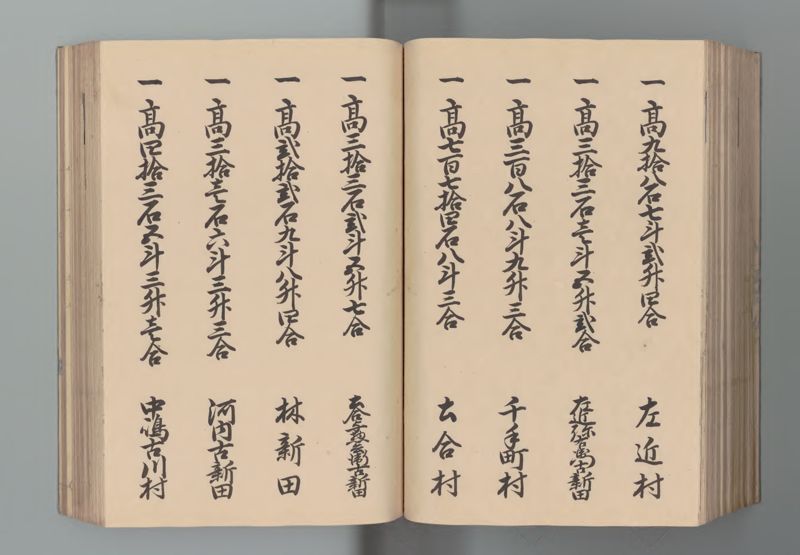 一 高九拾八石七斗弐升四合 左近村
一 高三拾三石壱斗五升弐合 左近弥右衛門古新田
一 高三百八石八斗九升三合 千手町村
一 高七百七拾四石八斗三合 去合村
一 高三拾三石弐斗五升七合 去合 古新田
一 高弐拾弐石九斗八升四合 林新田
一 高三拾壱石六斗三升三合 河内古新田
一 高四拾三石五斗三升壱合 中嶋古川村